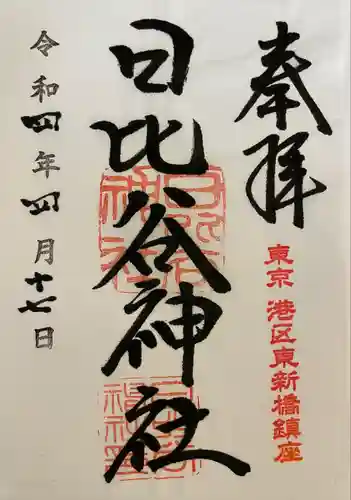 奉拝
東京 港区東新橋鎮座
日比谷神社
令和四年四月十七日